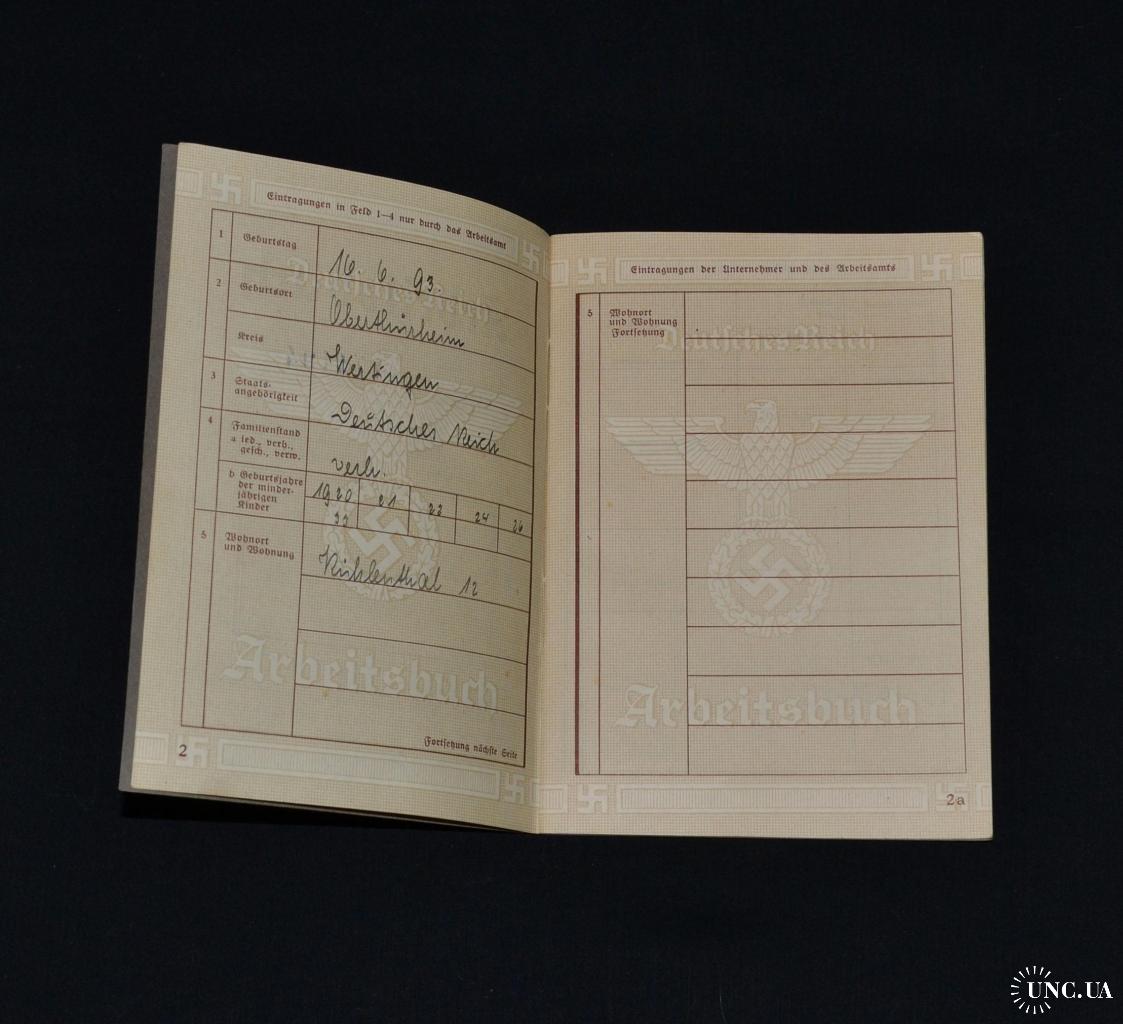 Eintragungen in Feld 1—4 nur durch das Arbeitsamt
1 Geburtstag 16. 6. 93.
2 Geburtsort Oberthürheim
Kreis Wertingen
3 Staats-
angehörigkeit Deutsches Reich
4 Familienstand
a led., verh.,
gesch., verw. verh.
b Geburtsjahre
der minder-
jährigen
Kinder
1920 21 23 24 26
33
5 Wohnort
und Wohnung
Kühlenthal 12
Deutsches Reich
Arbeitsbuch
Fortsetzung nächste Seite
2
Eintragungen der Unternehmer und des Arbeitsamts
5 Wohnort
und Wohnung
Fortsetzung
Deutsches Reich
Arbeitsbuch
2a
UNC.UA